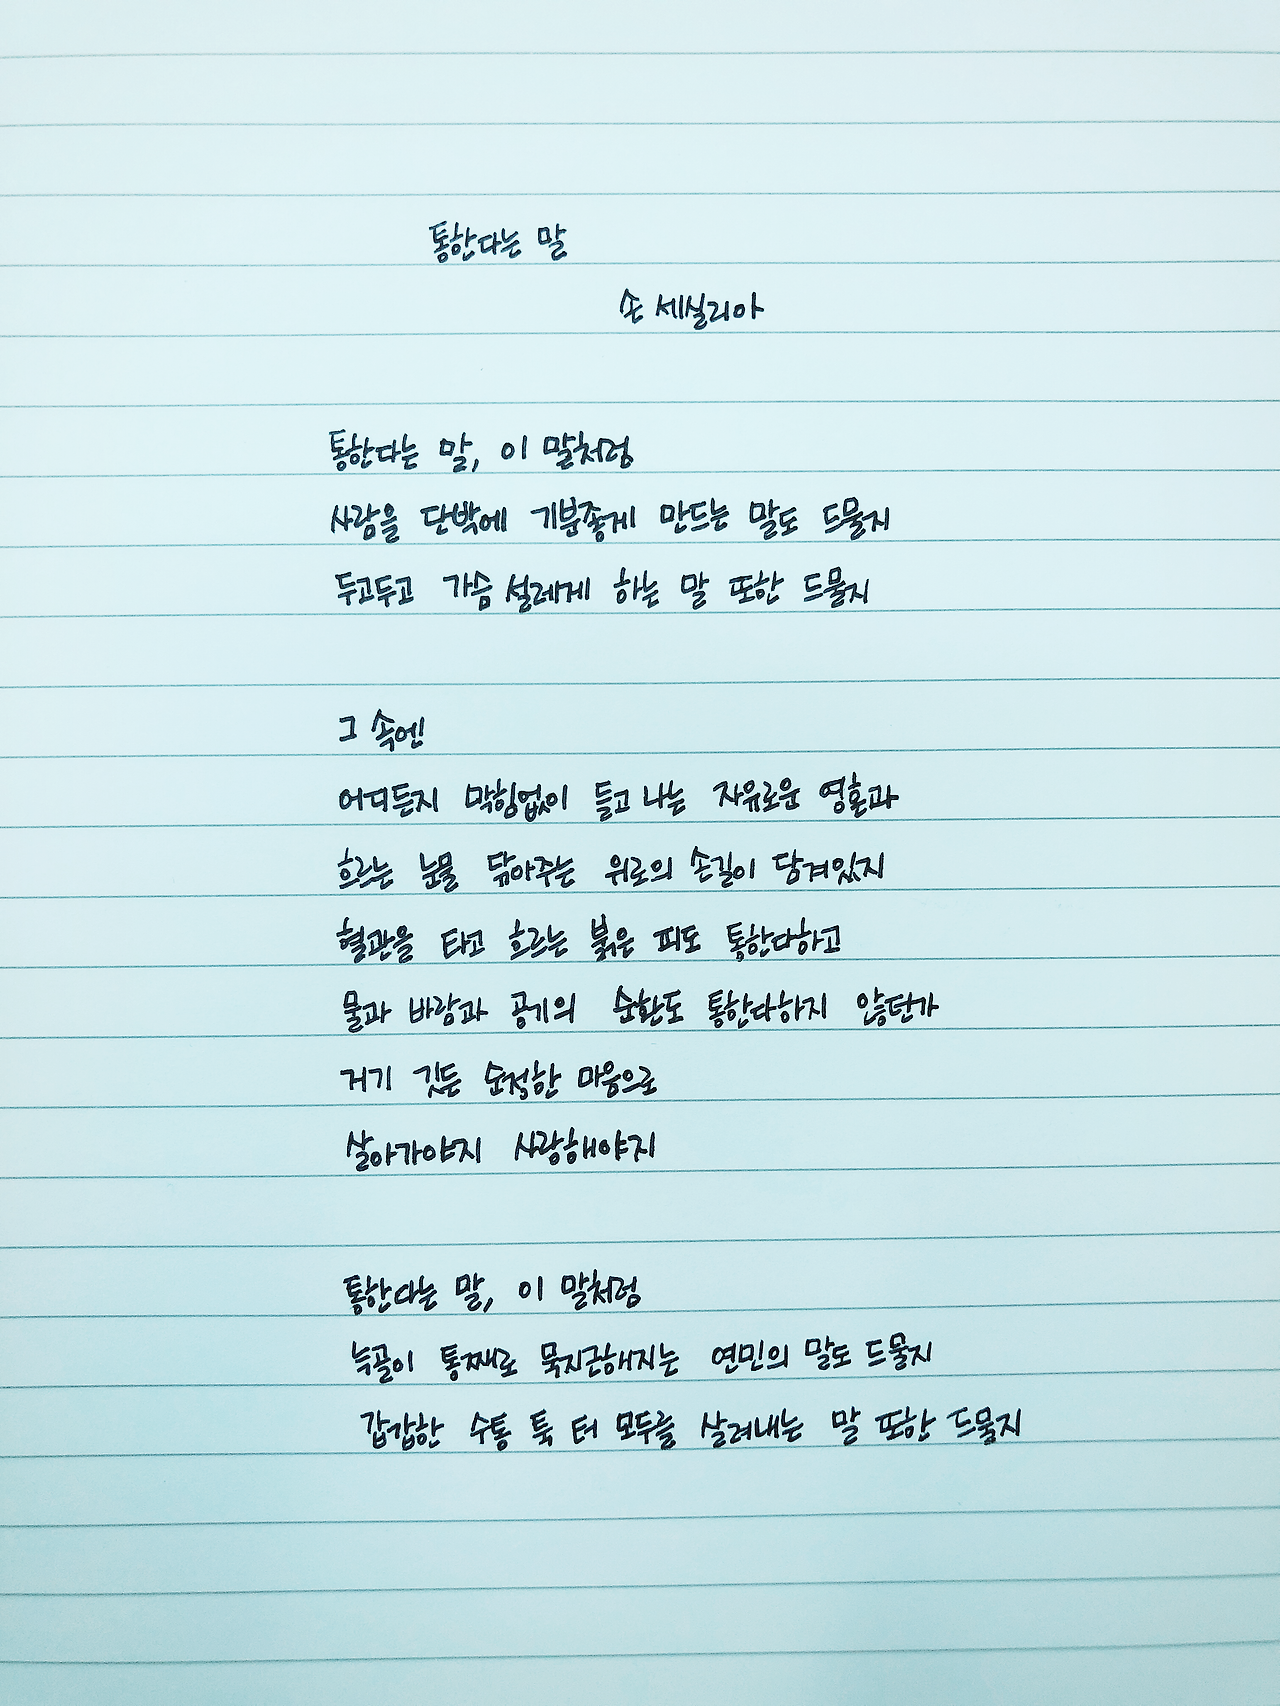 통한다는 말
손 세실리아
통한다는 말, 이 말처럼
사람을 단박에 기분좋게 만드는 말도 드물지
두고두고 가슴 설레게 하는 말 또한 드물지
그 속엔
어디든지 막힘없이 들고 나는 자유로운 영혼과
흐르는 눈물 닦아주는 위로의 손길이 담겨있지
혈관을 타고 흐르는 붉은 피도 통한다하고
물과 바람과 공기의 순환도 통한다하지 않던가
거기 깃든 순정한 마음으로
살아가야지 사랑해야지
통한다는 말, 이 말처럼
늑골이 통째로 묵지근해지는 연민의 말도 드물지
갑갑한 숨통 툭 터 모두를 살려내는 말 또한 드물지